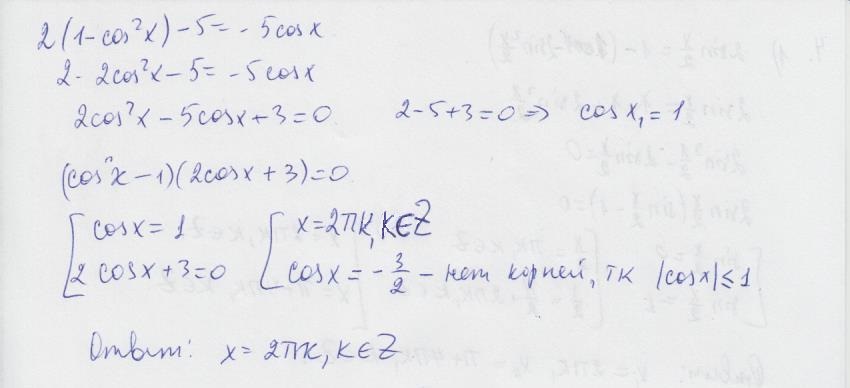 2(1-cos²x)-5=-5cosx
2-2cos²x-5=-5cosx
2cos²x-5cosx+3=0 2-5+3=0⇒ cosx₁=1
(cosx-1)(2cosx+3)=0
[cosx=1 [x=2πk,k∈Z
[2cosx+3=0 [cosx=-3/2 - нет корней, тк |cosx|≤1
Ответ: x=2πk,k∈Z